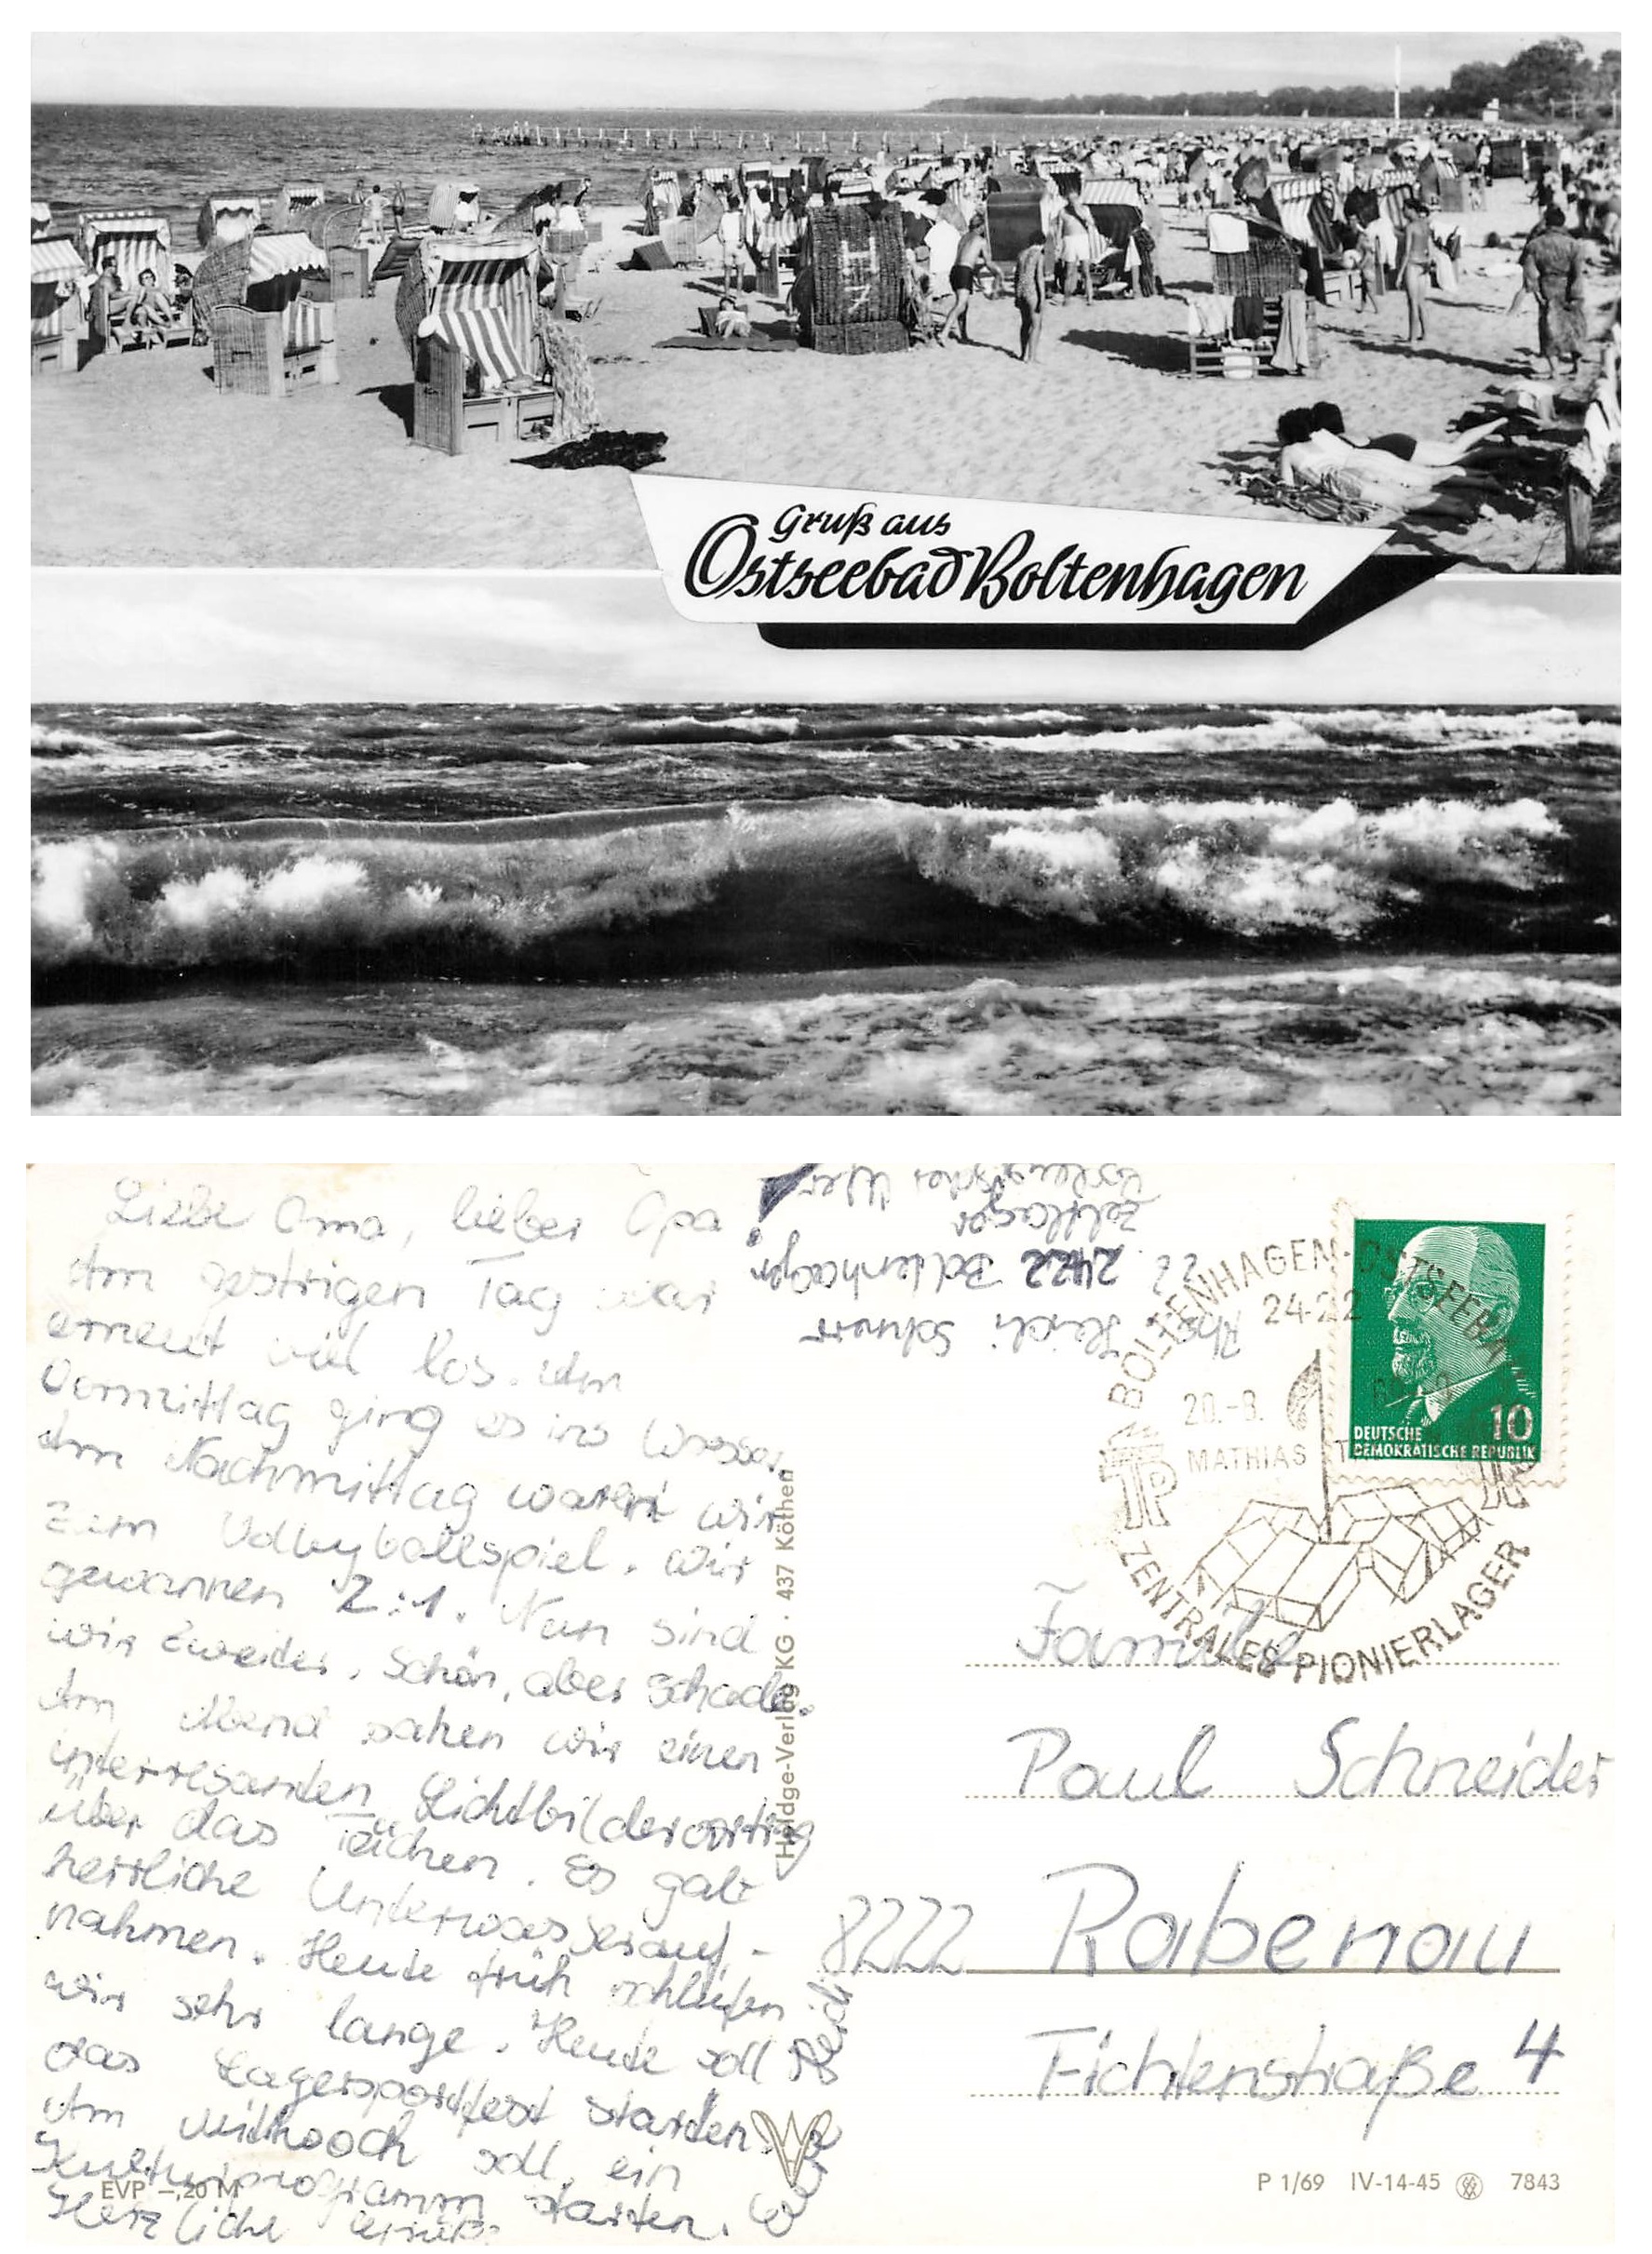 Gruß aus
Ostseebad Boltenhagen
Liebe Oma, lieber Opa
Am gestrigen Tag war
erneut viel los. Am
Vormittag ging es ins Wasser.
Am Nachmittag waren wir
zum Volleyballspiel. Wir
gewannen 2:1. Nun sind
wir Zweiter. Schön, aber schade.
Am Abend sahen wir einen
über das Tauchen. Es gab
herrliche Unterwasserauf-
nahmen. Heute früh schliefen
wir sehr lange. Heute soll
das Lagersportfest starten.
Am Mittwoch soll ein
Kulturprogramm starten.
Herzliche Grüße
Eure Heidi
Abs. Heidi Schnerr
2422 Boltenhagen
Zeltlager
BOLTENHAGEN·OSTSEEBAD
2422
20.-8.
MATHIAS T
TP
ZENTRALES PIONIERLAGER
10
DEUTSCHE
DEMOKRATISCHE REPUBLIK
Familie
Paul Schneider
8222 Rabenau
Fichtenstraße 4
Heldge-Verlag KG · 437 Köthen
EVP –,20 M
P 1/69 IV-14-45 7843